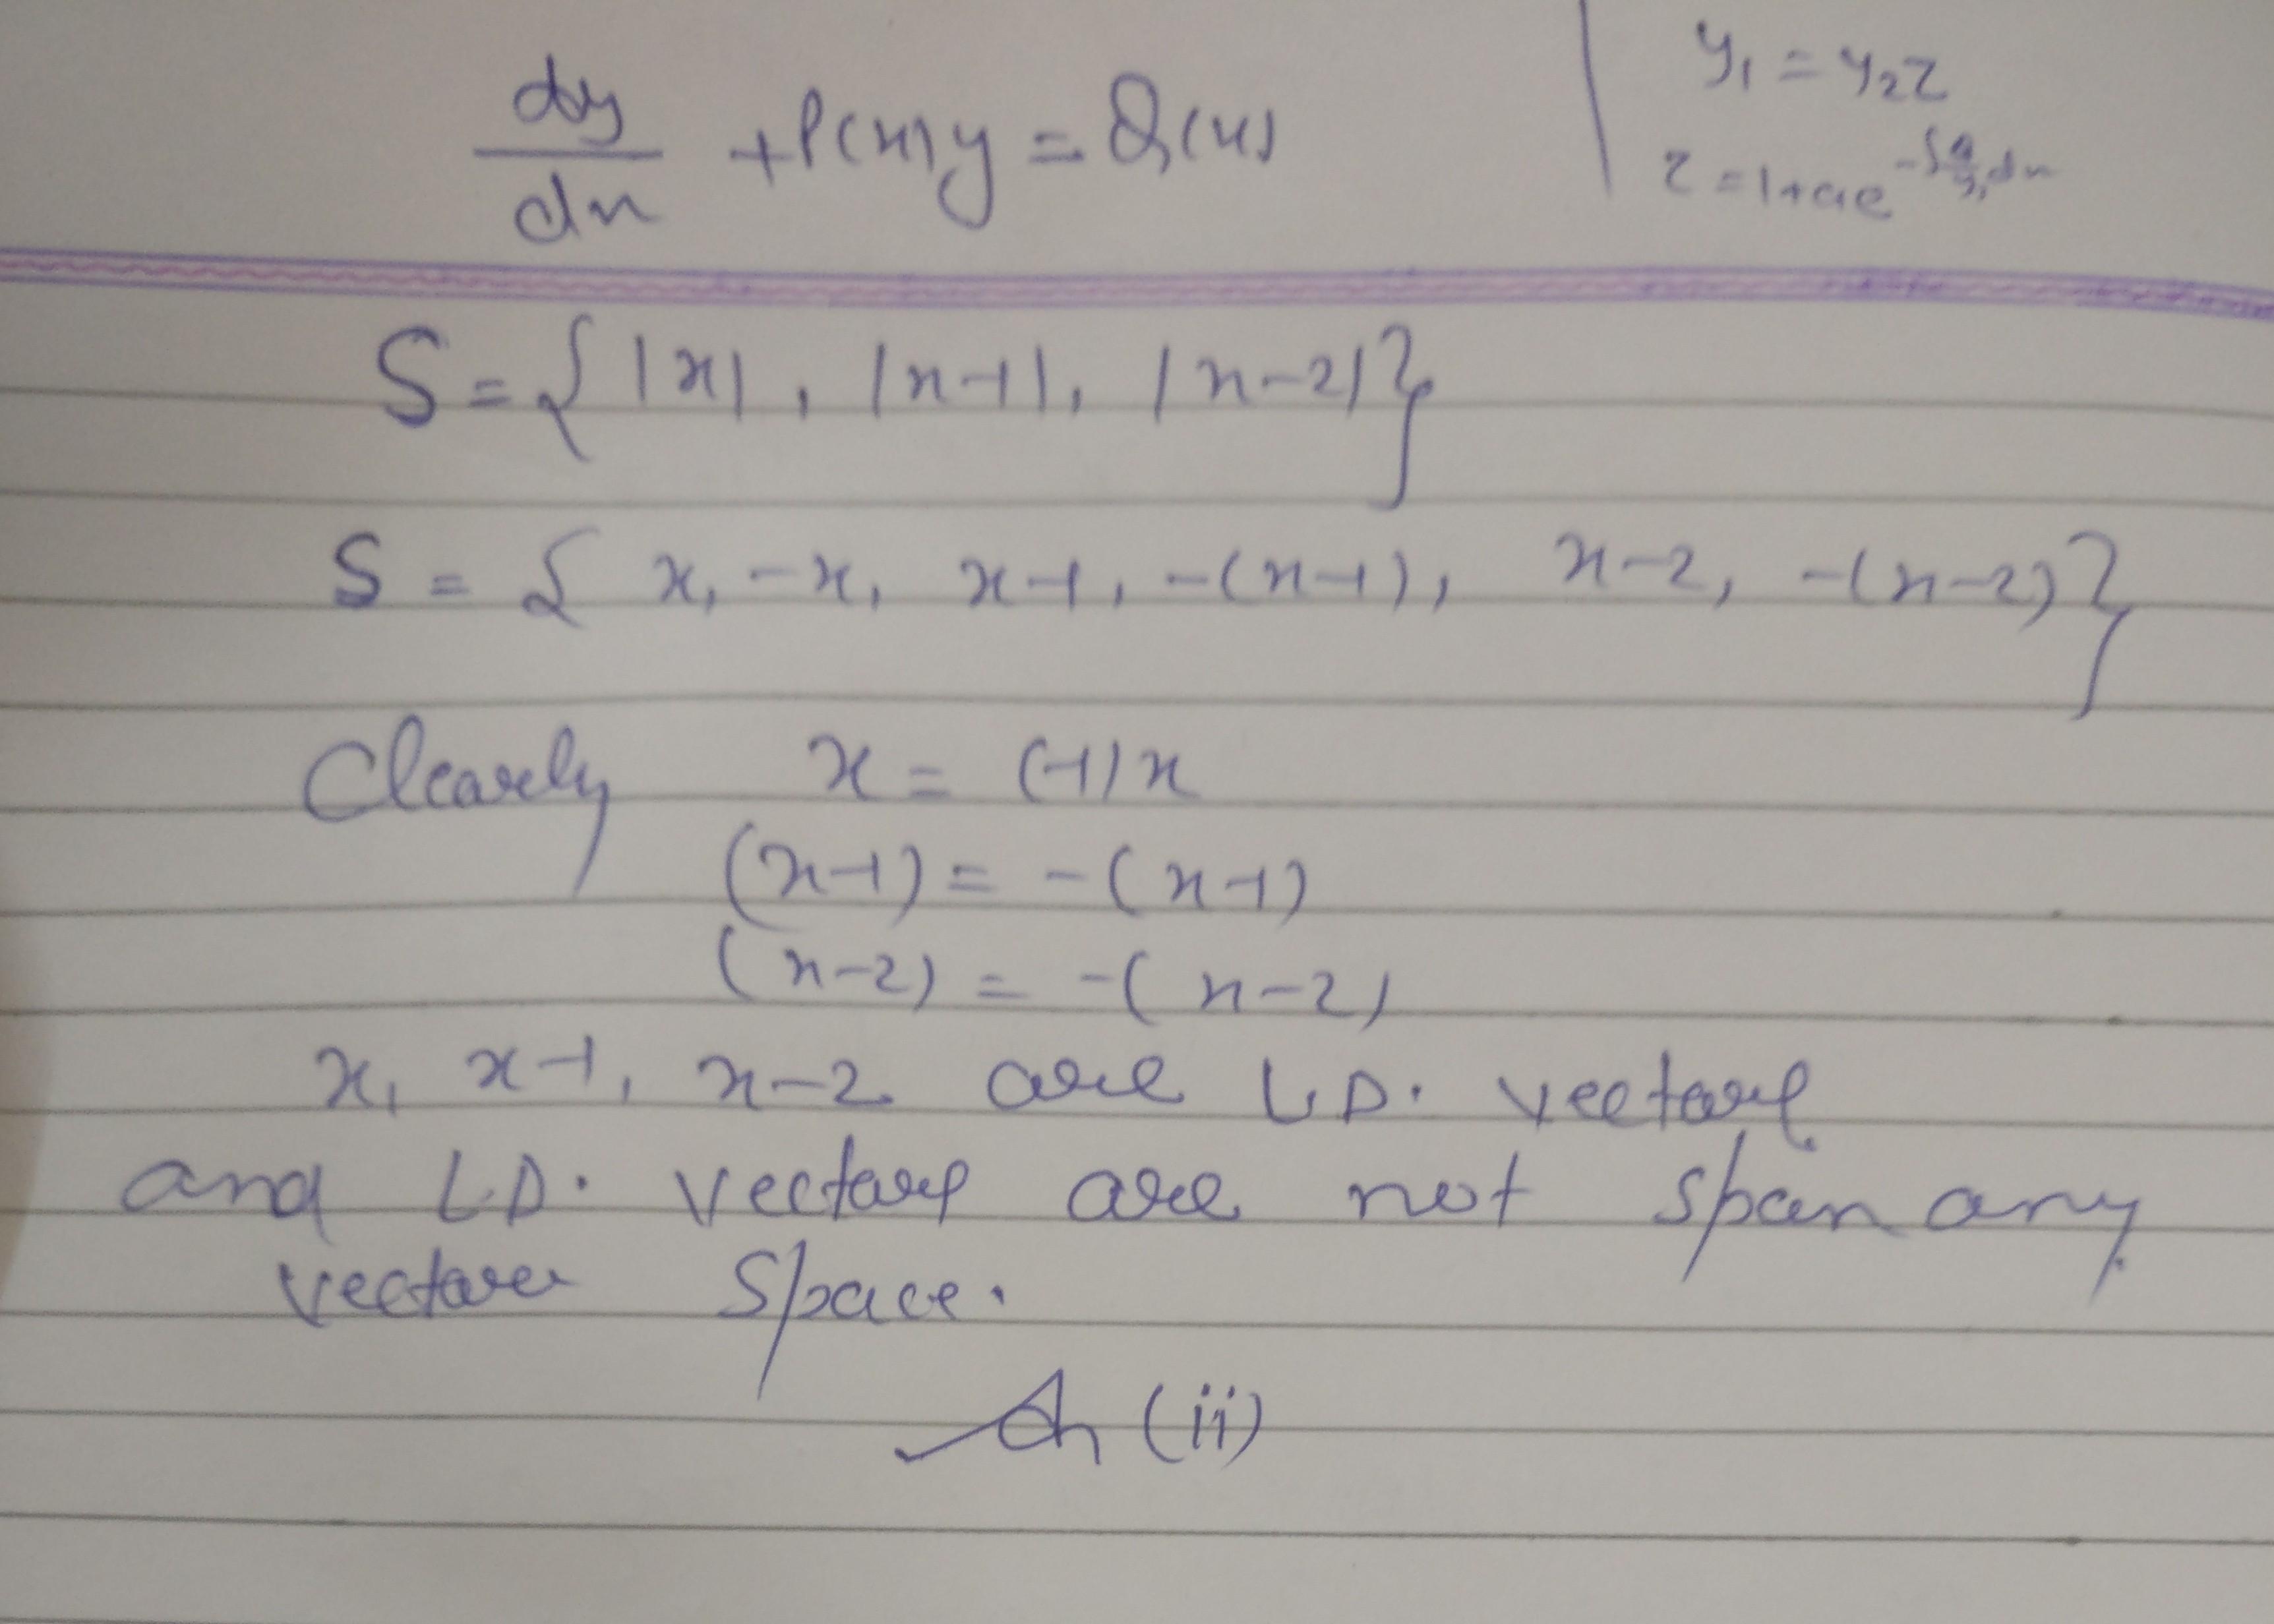 dy/dx + P(x)y = Q(x)
y₁ = y₂z
z = 1+ae^{-∫Q/y₁ dx}
S = { |x|, |x-1|, |x-2| }
S = { x, -x, x-1, -(x-1), x-2, -(x-2) }
Clearly x = (-1)x
(x-1) = -(x-1)
(x-2) = -(x-2)
x, x-1, x-2 are L.D. vectors
and L.D. vectors are not span any
vector space.
(ii)